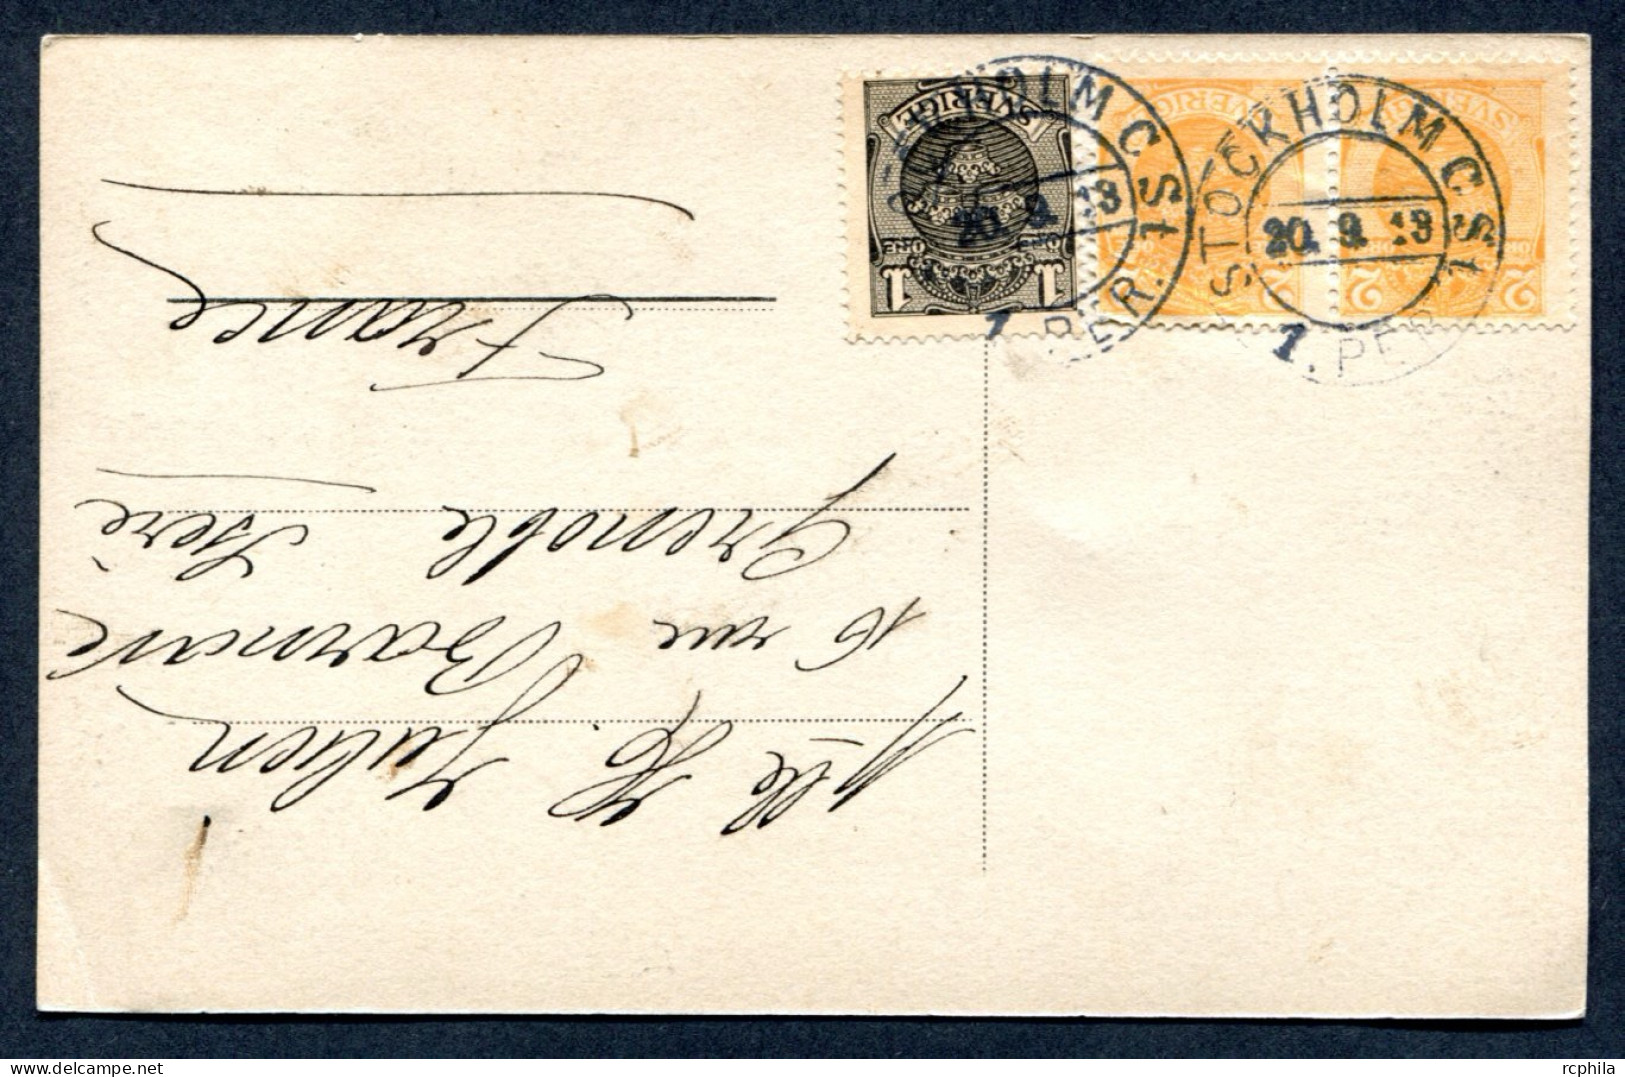 STOCKHOLM C
1ST
20. 9. 13
1. PER.
STOCKHOLM C
1ST
20. 9. 13
1. PER
SVERIGE
1 ÖRE 1
SVERIGE
2
SVERIGE
2 2
Mlle H. Julien
16 rue Barnave
Grenoble Isère
France
rcphila